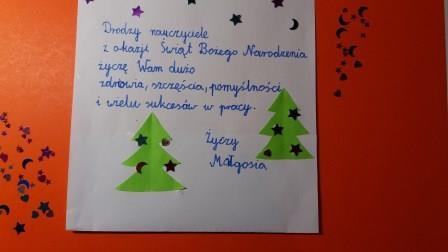 Drodzy nauczyciele
z okazji Świąt Bożego Narodzenia
życzę Wam dużo
zdrowia, szczęścia, pomyślności
i wielu sukcesów w pracy.
Życzy
Małgosia